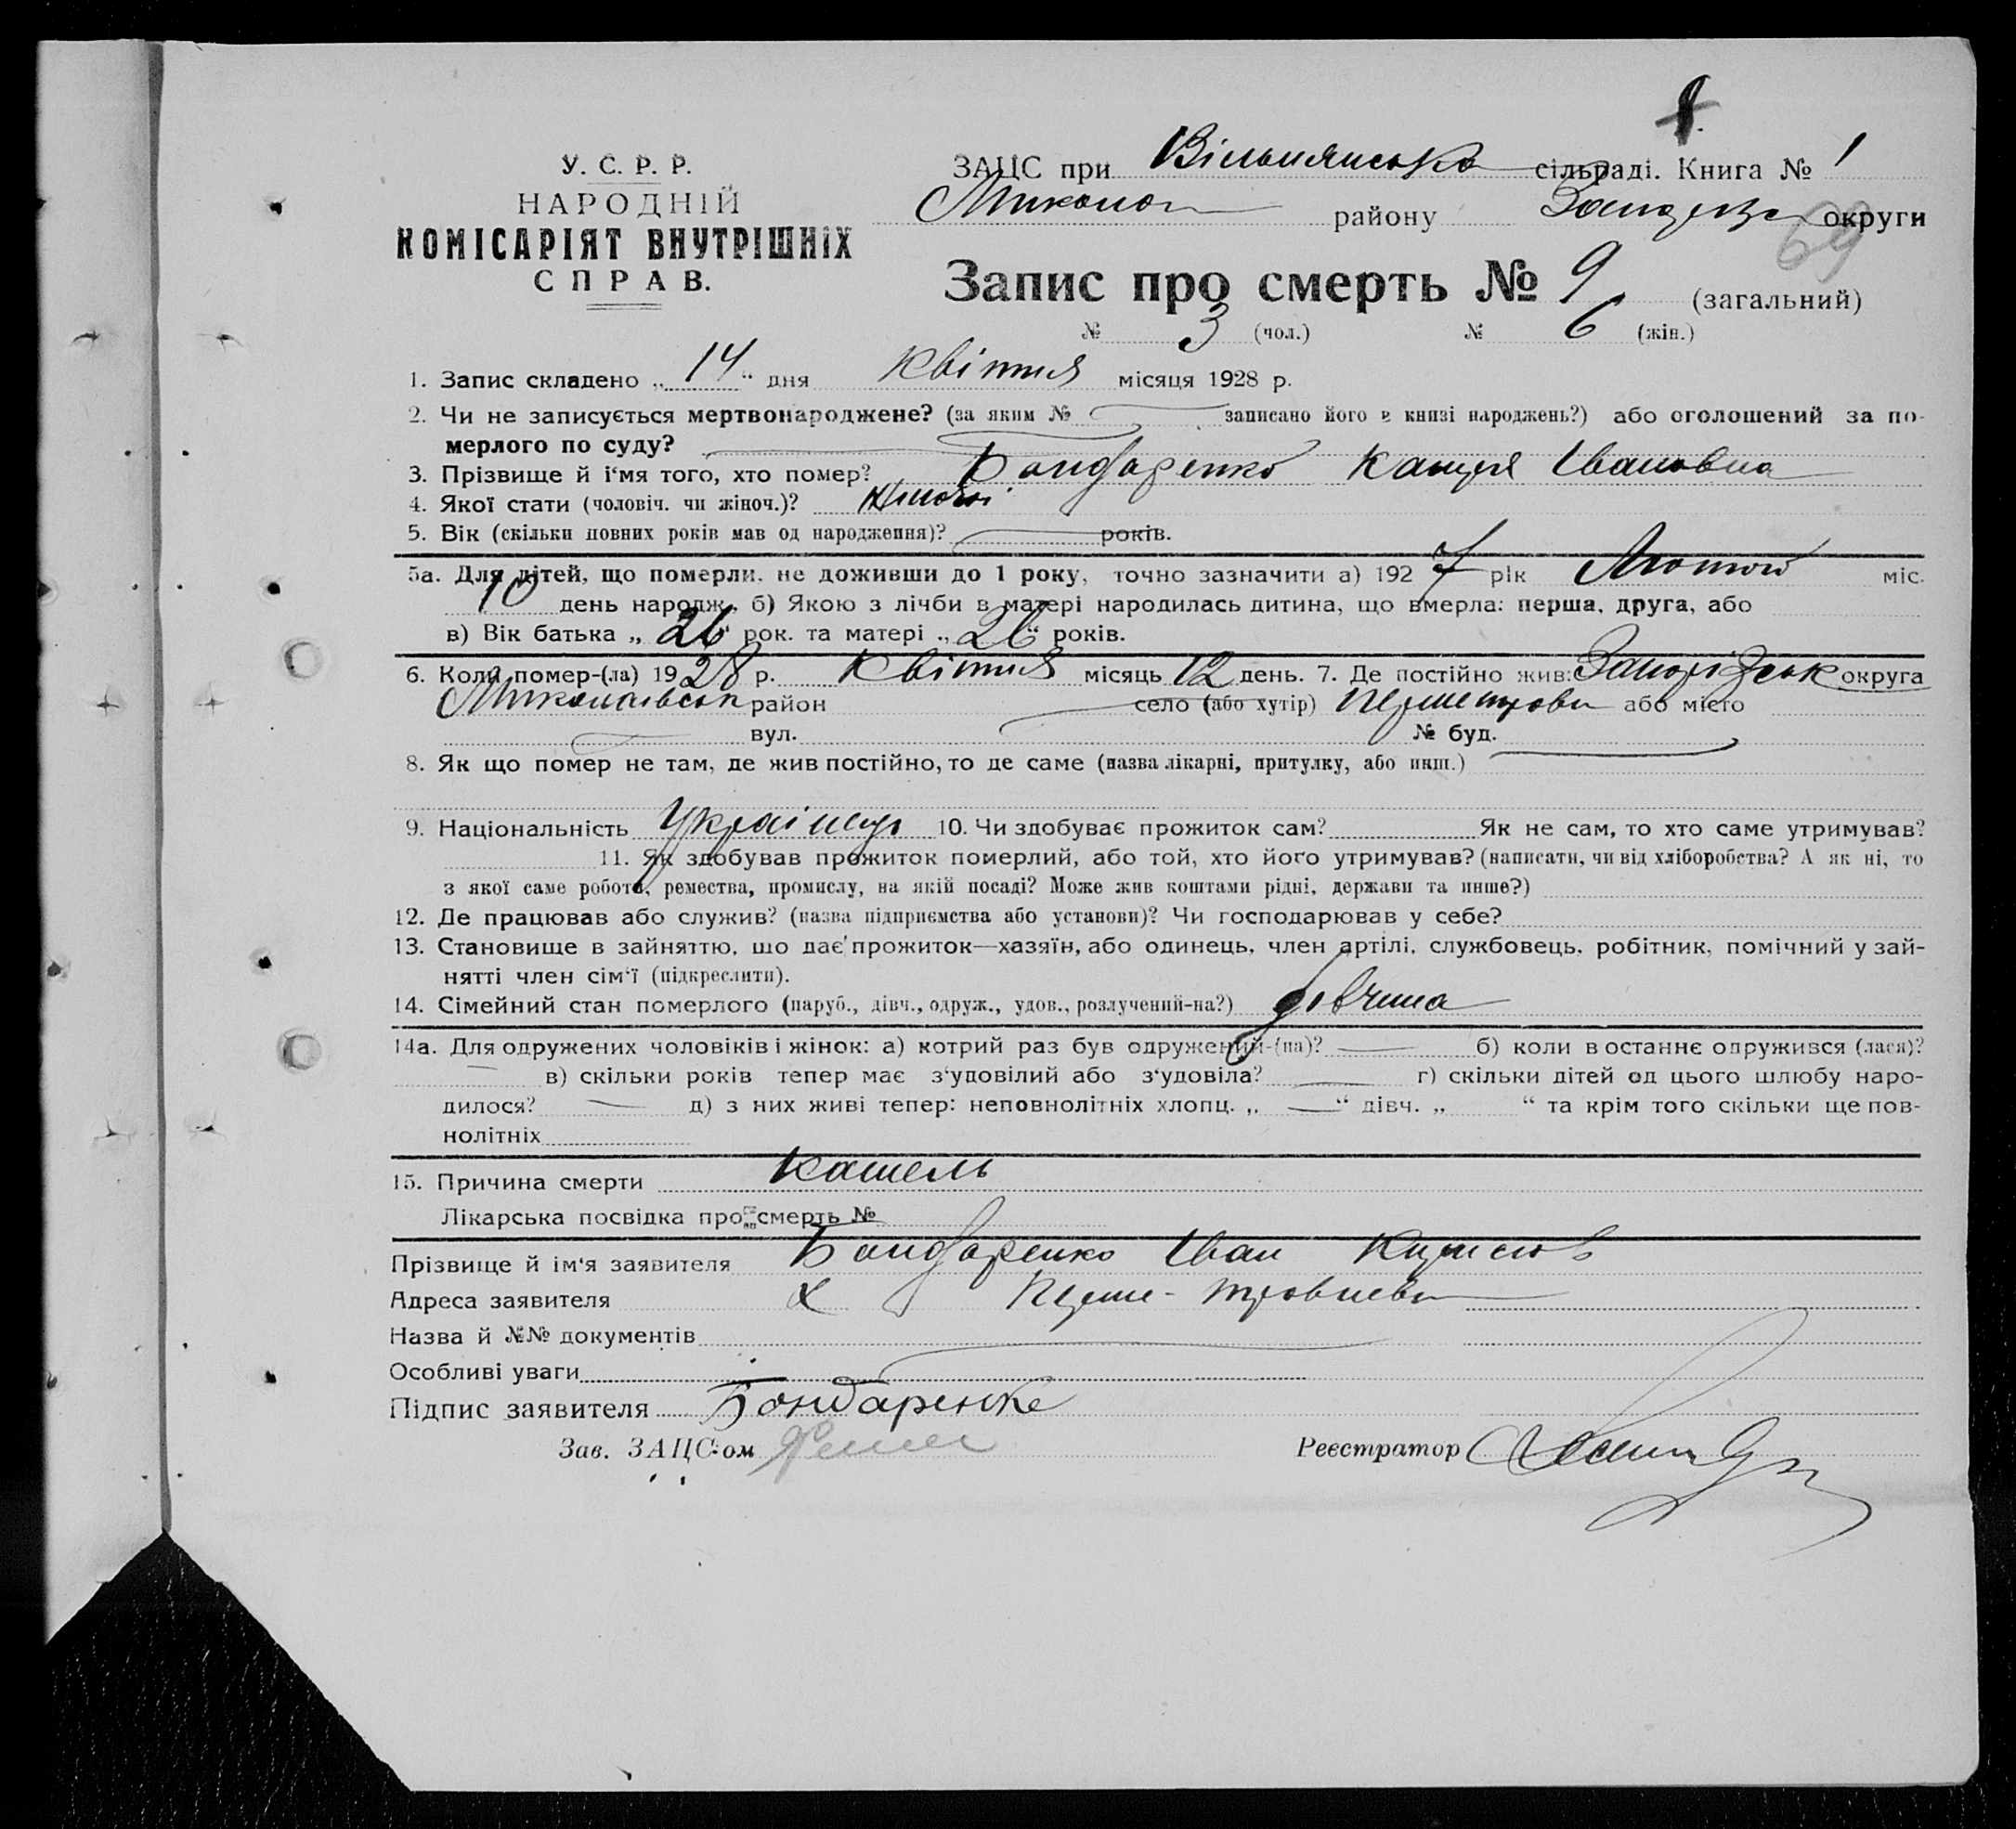 У. С. Р. Р.
НАРОДНІЙ
КОМІСАРІЯТ ВНУТРІШНІХ
СПРАВ.
ЗАЦС при Вільнянська сільраді. Книга № 1
Микола району округи
69
Запис про смерть № 9 (загальний)
№ 3 (чол.) № 6 (жін.)
1. Запис складено „ 14 “ дня Квітня місяця 1928 р.
2. Чи не записується мертвонароджене? (за яким № записано його в книзі народжень?) або оголошений за по-
мерлого по суду?
3. Прізвище й і'мя того, хто помер? Бондаренко Івановна
4. Якої стати (чоловіч. чи жіноч.)?
5. Вік (скільки повних років мав од народження)? років.
5а. Для дітей, що померли, не доживши до 1 року, точно зазначити а) 192 7 рік Лютого міс.
10 день народж., б) Якою з лічби в матері народилась дитина, що вмерла: перша, друга, або
в) Вік батька „ 26 “ рок. та матері „ 26 “ років.
6. Коли помер-(ла) 19 28 р. Квітня місяць 12 день. 7. Де постійно жив: Запорізськ округа
Миколаівськ район село (або хутір) або місто
вул. № буд.
8. Як що помер не там, де жив постійно, то де саме (назва лікарні, притулку, або инш.)
9. Національність 10. Чи здобуває прожиток сам? Як не сам, то хто саме утримував?
11. Як здобував прожиток померлий, або той, хто його утримував? (написати, чи від хліборобства? А як ні, то
з якої саме роботи, ремества, промислу, на якій посаді? Може жив коштами рідні, держави та инше?)
12. Де працював або служив? (назва підприємства або установи)? Чи господарював у себе?
13. Становище в зайняттю, що дає прожиток—хазяїн, або одинець, член артілі, службовець, робітник, помічний у зай-
нятті член сім'ї (підкреслити).
14. Сімейний стан померлого (паруб., дівч., одруж., удов., розлучений-на?) дівчина
14а. Для одружених чоловіків і жінок: а) котрий раз був одружений-(на)? б) коли в останнє одружився (лася)?
в) скільки років тепер має з'удовілий або з'удовіла? г) скільки дітей од цього шлюбу наро-
дилося? д) з них живі тепер: неповнолітніх хлопц. „ “ дівч. „ “ та крім того скільки ще пов-
нолітніх
15. Причина смерти Кашель
Лікарська посвідка про смерть №
Прізвище й ім'я заявителя Бондаренко Іван
Адреса заявителя х
Назва й №№ документів
Особливі уваги
Підпис заявителя Бондаренко
Зав. ЗАЦС-ом
Реєстратор